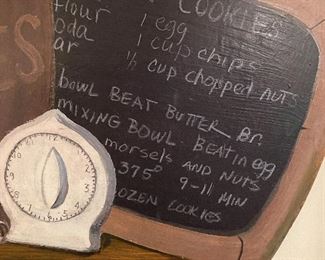 COOKIES
flour 1 egg
oda 1 cup chips
ar ½ cup chopped nuts
bowl BEAT BUTTER Br.
mixing BOWL. Beat in egg
morsels AND NUTS
375° 9-11 MIN
OZEN COOKIES